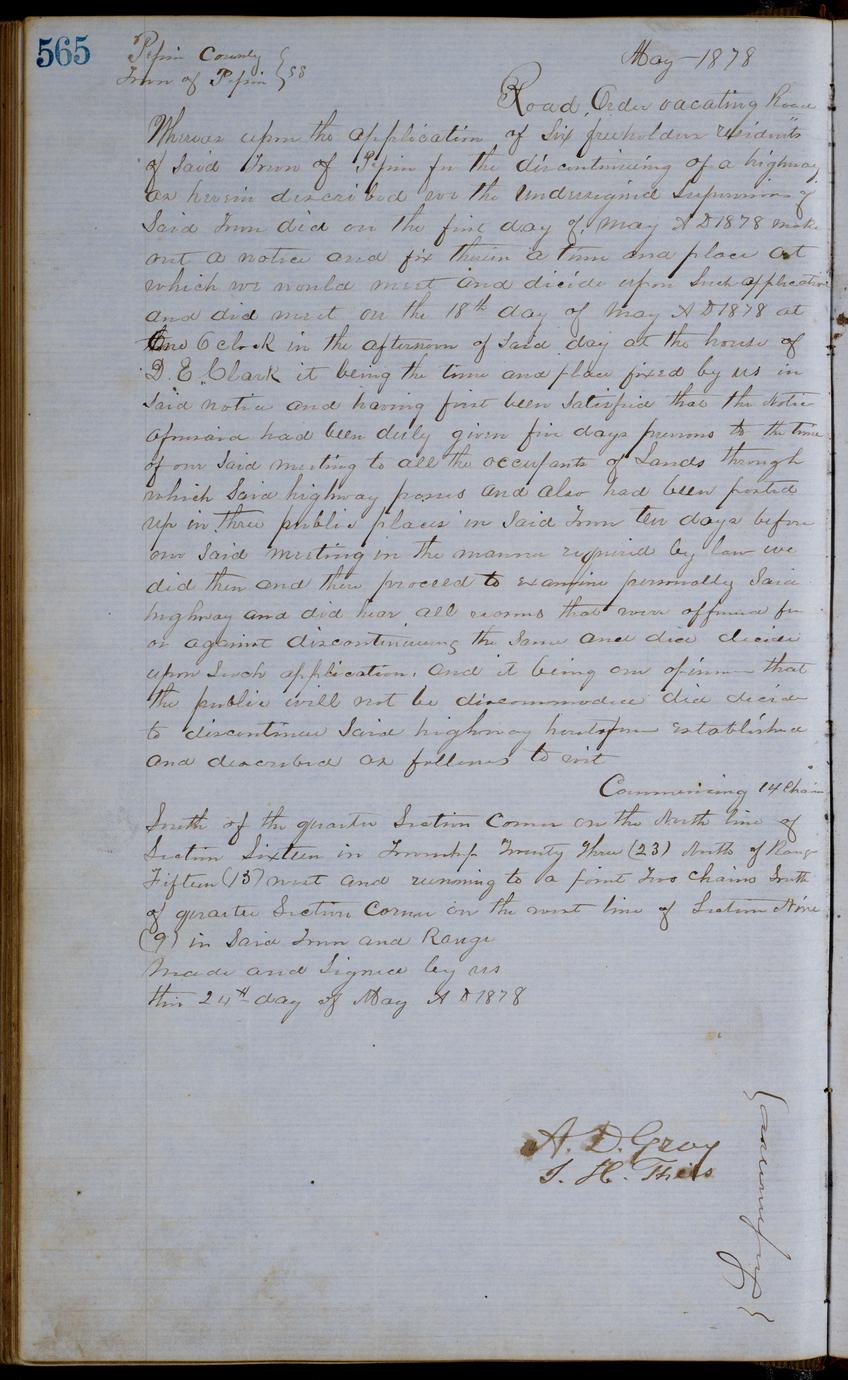 565
Pepin County } ss
Town of Pepin
May 1878
Road Order vacating Road
Whereas upon the application of Six freeholders residents
of Said Town of Pepin for the discontinuing of a highway
as herein described we the undersigned Supervisors of
Said Town did on the first day of May A D 1878 make
out a notice and fix therein a time and place at
which we would meet and decide upon Such application
and did meet on the 18th day of May A D 1878 at
One O clock in the afternoon of Said day at the house of
D. E. Clark it being the time and place fixed by us in
Said notice and having first been Satisfied that the Notice
aforesaid had been duly given five days previous to the time
of our Said meeting to all the occupants of Lands through
which Said highway passes and also had been posted
up in three public places in Said Town ten days before
our Said meeting in the manner required by law we
did then and there proceed to examine personally Said
highway and did hear all reasons that were offered for
or against discontinueing the Same and did decide
upon Such application. and it being our opinion that
the public will not be discommoded did decide
to discontinue Said highway heretofore established
and described as follows to wit
Commencing 14 Chains
South of the quarter Section Corner on the North line of
Section Sixteen in Township Twenty Three (23) North of Range
Fifteen (15) west and running to a point Two Chains South
of quarter Section Corner on the west line of Section Nine
(9) in Said Town and Range
Made and Signed by us
this 24th day of May A D 1878
A. D. Gray